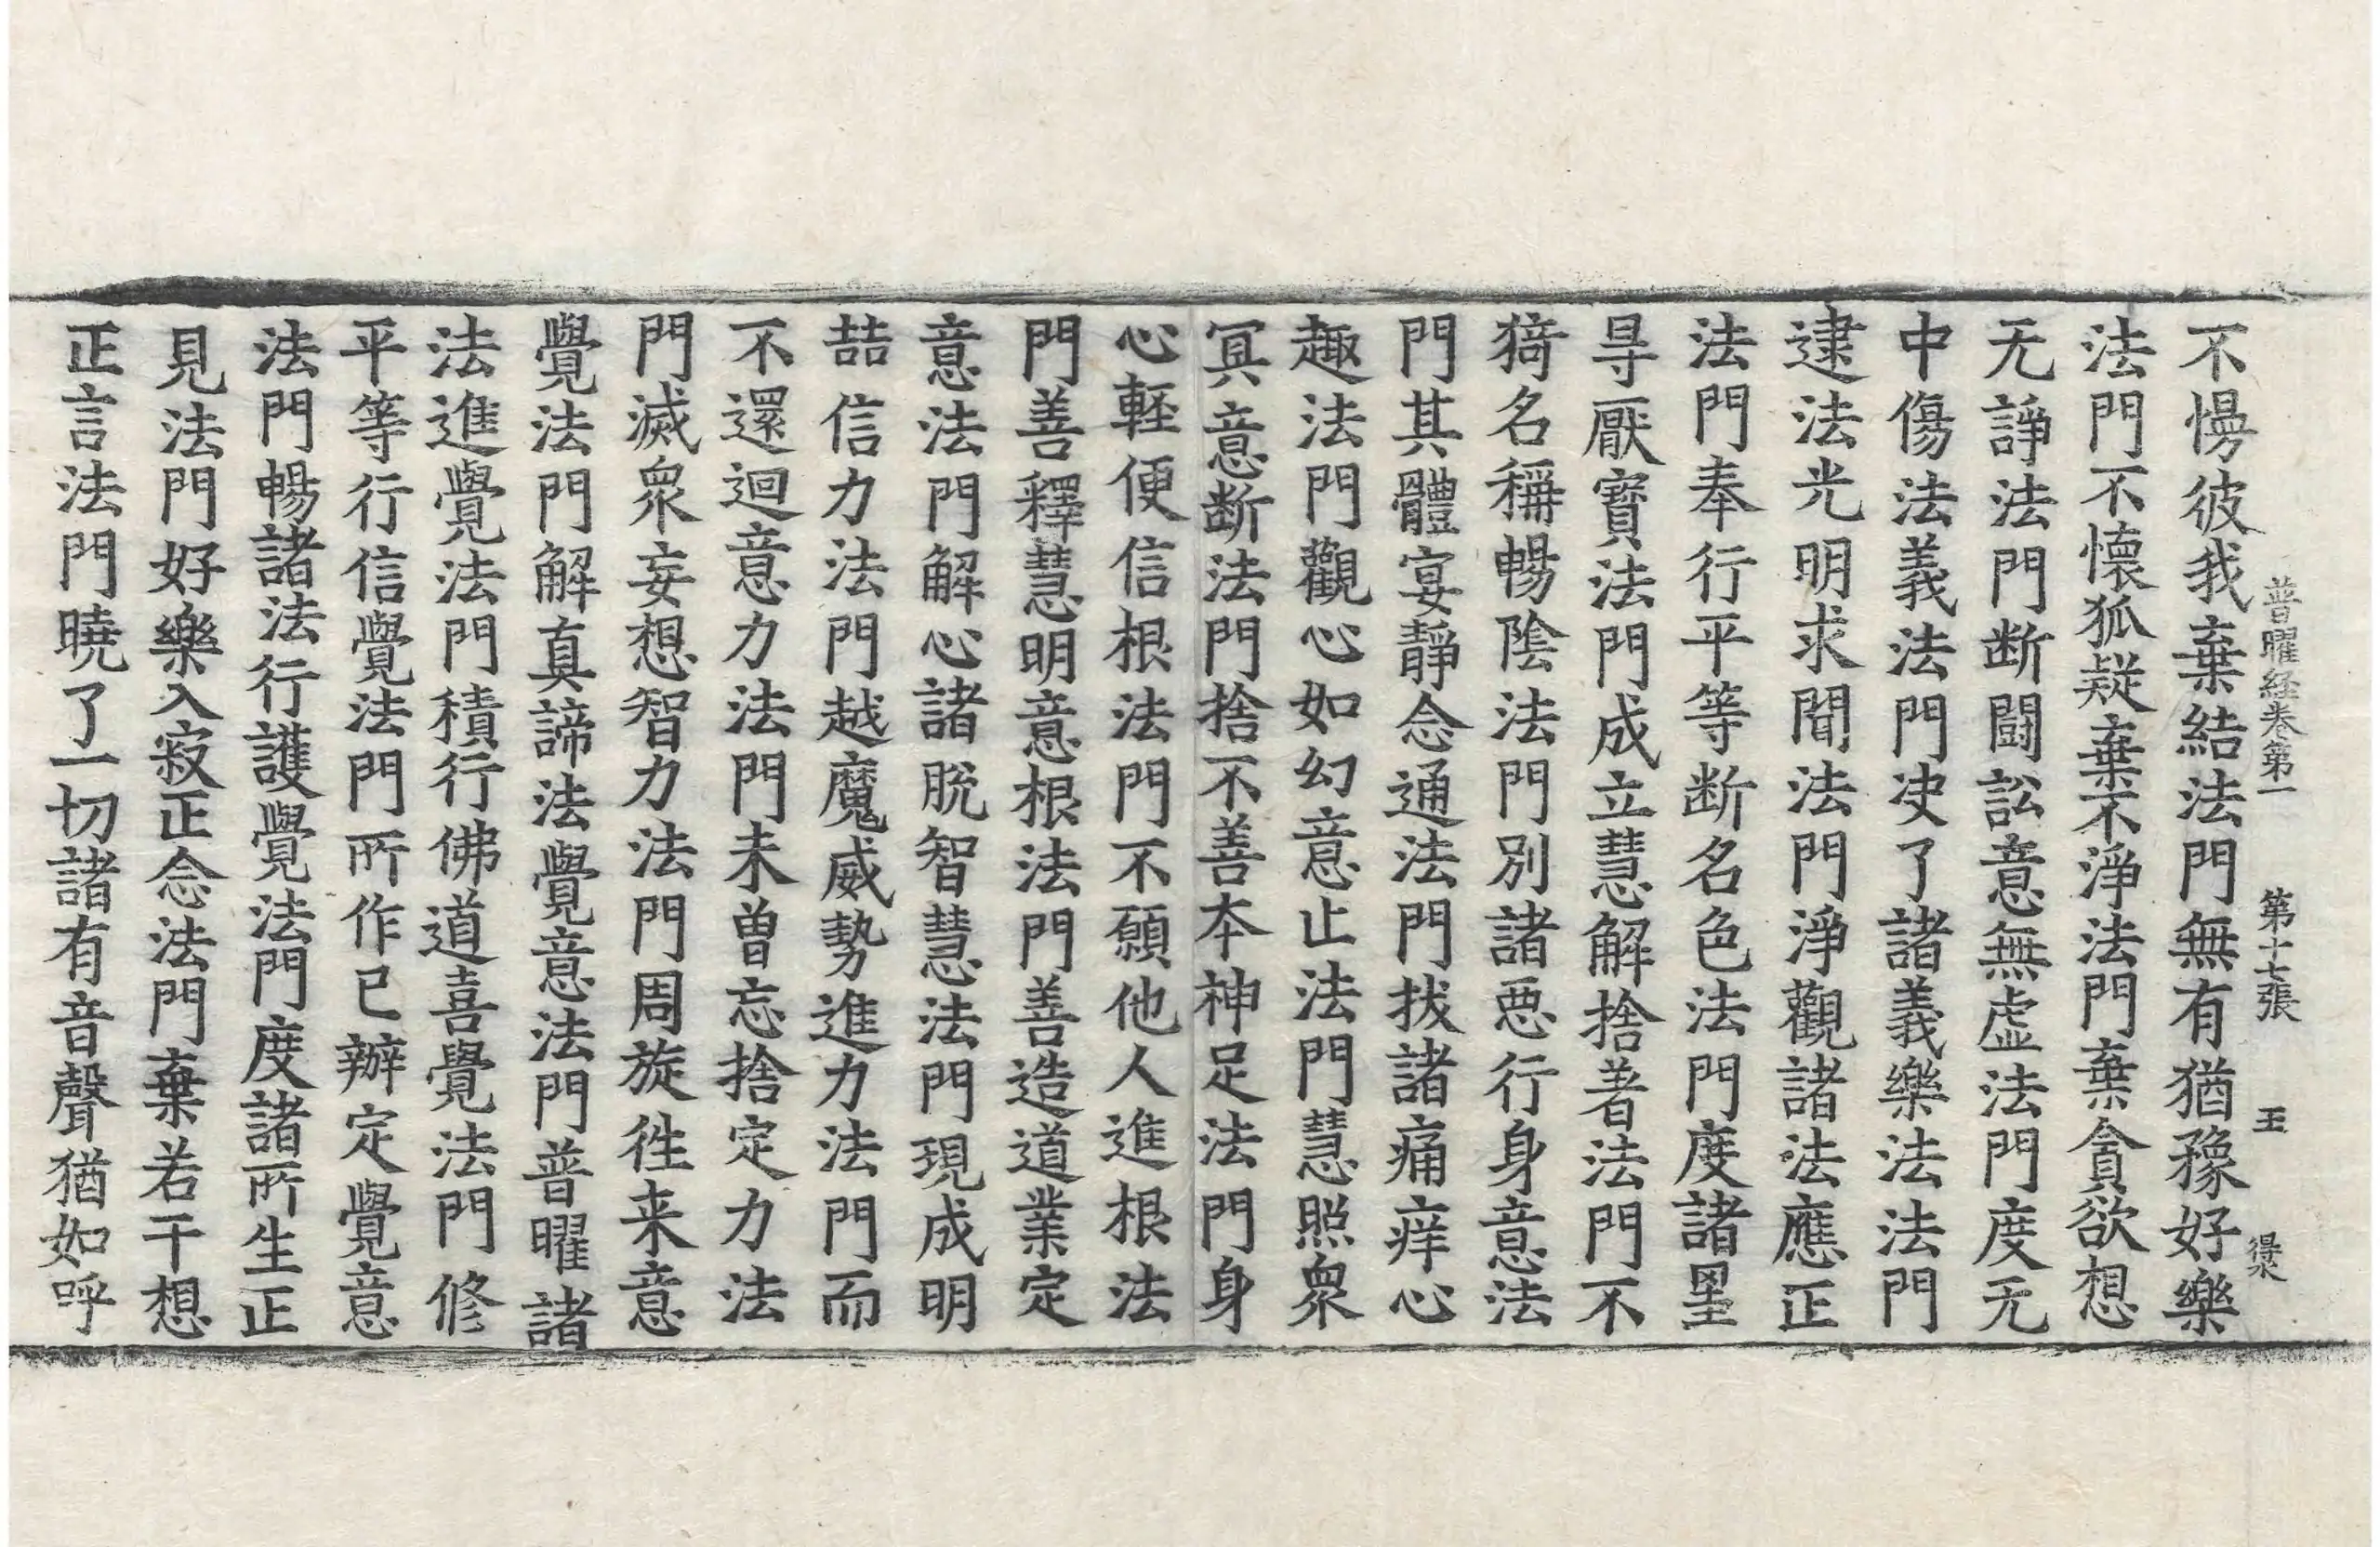 普曜経巻第一　第十七張　王　得
不慢彼我棄結法門無有猶豫好樂
法門不懷狐疑棄不淨法門棄貪欲想
无諍法門断闘訟意無虚法門度无
中傷法義法門决了諸義樂法法門
逮法光明求聞法門淨觀諸法應正
法門奉行平等断名色法門度諸罣
㝵厭寳法門成立慧解捨著法門不
猗名稱暢陰法門別諸惡行身意法
門其體宴靜念通法門拔諸痛痒心
趣法門觀心如幻意止法門慧照衆
冥意断法門捨不善本神足法門身
心輕便信根法門不願他人進根法
門善釋慧明意根法門善造道業定
意法門解心諸脫智慧法門現成明
喆信力法門越魔威勢進力法門而
不還迴意力法門未曽忘捨定力法
門滅衆妄想智力法門周旋徃来意
覺法門解真諦法覺意法門普曜諸
法進覺法門積行佛道喜覺法門修
平等行信覺法門所作已辦定覺意
法門暢諸法行護覺法門度諸所生正
見法門好樂入寂正念法門棄若干想
正言法門曉了一切諸有音聲猶如呼